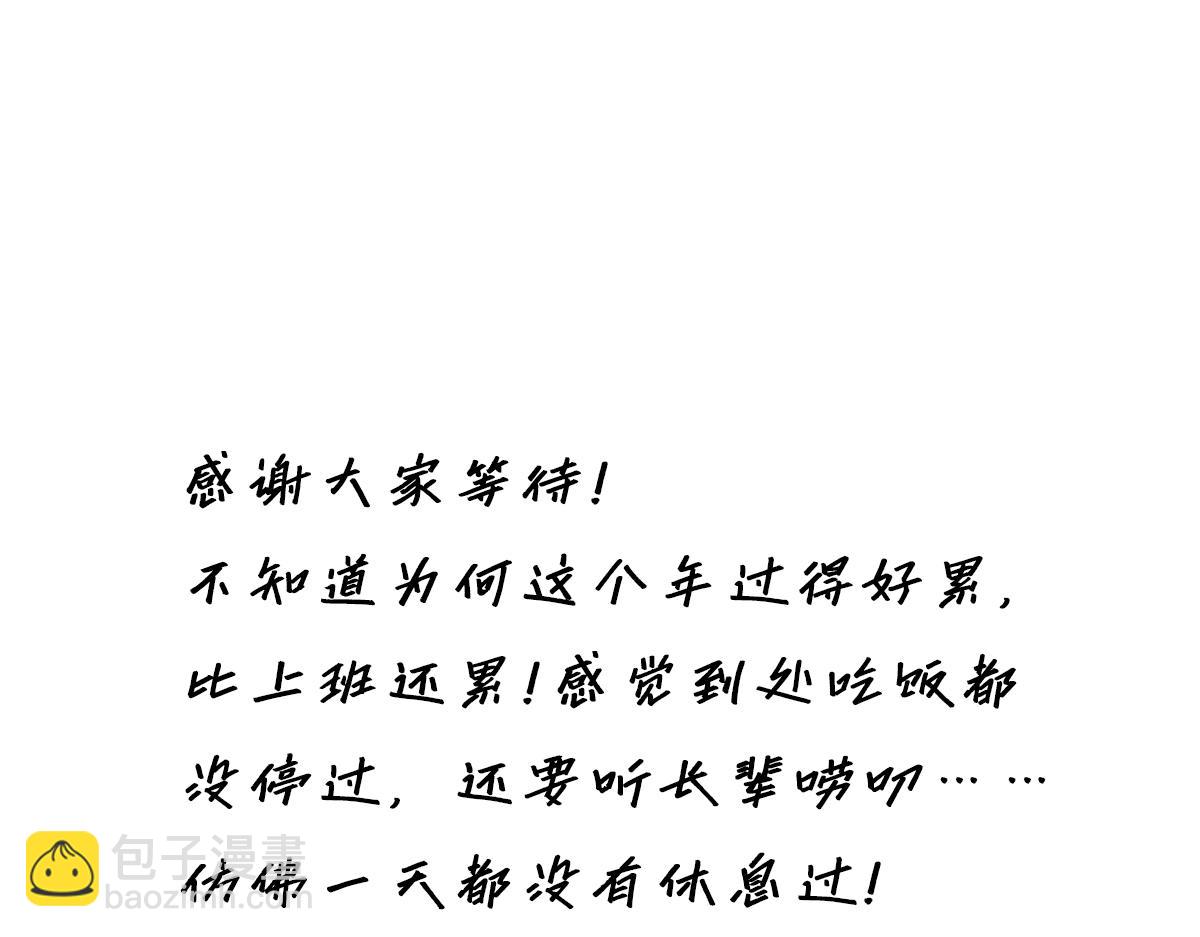 感谢大家等待!
不知道为何这个年过得好累,
比上班还累!感觉到处吃饭都
没停过, 还要听长辈唠叨… …
仿佛一天都没有休息过!
包子漫畫
baozimh.com